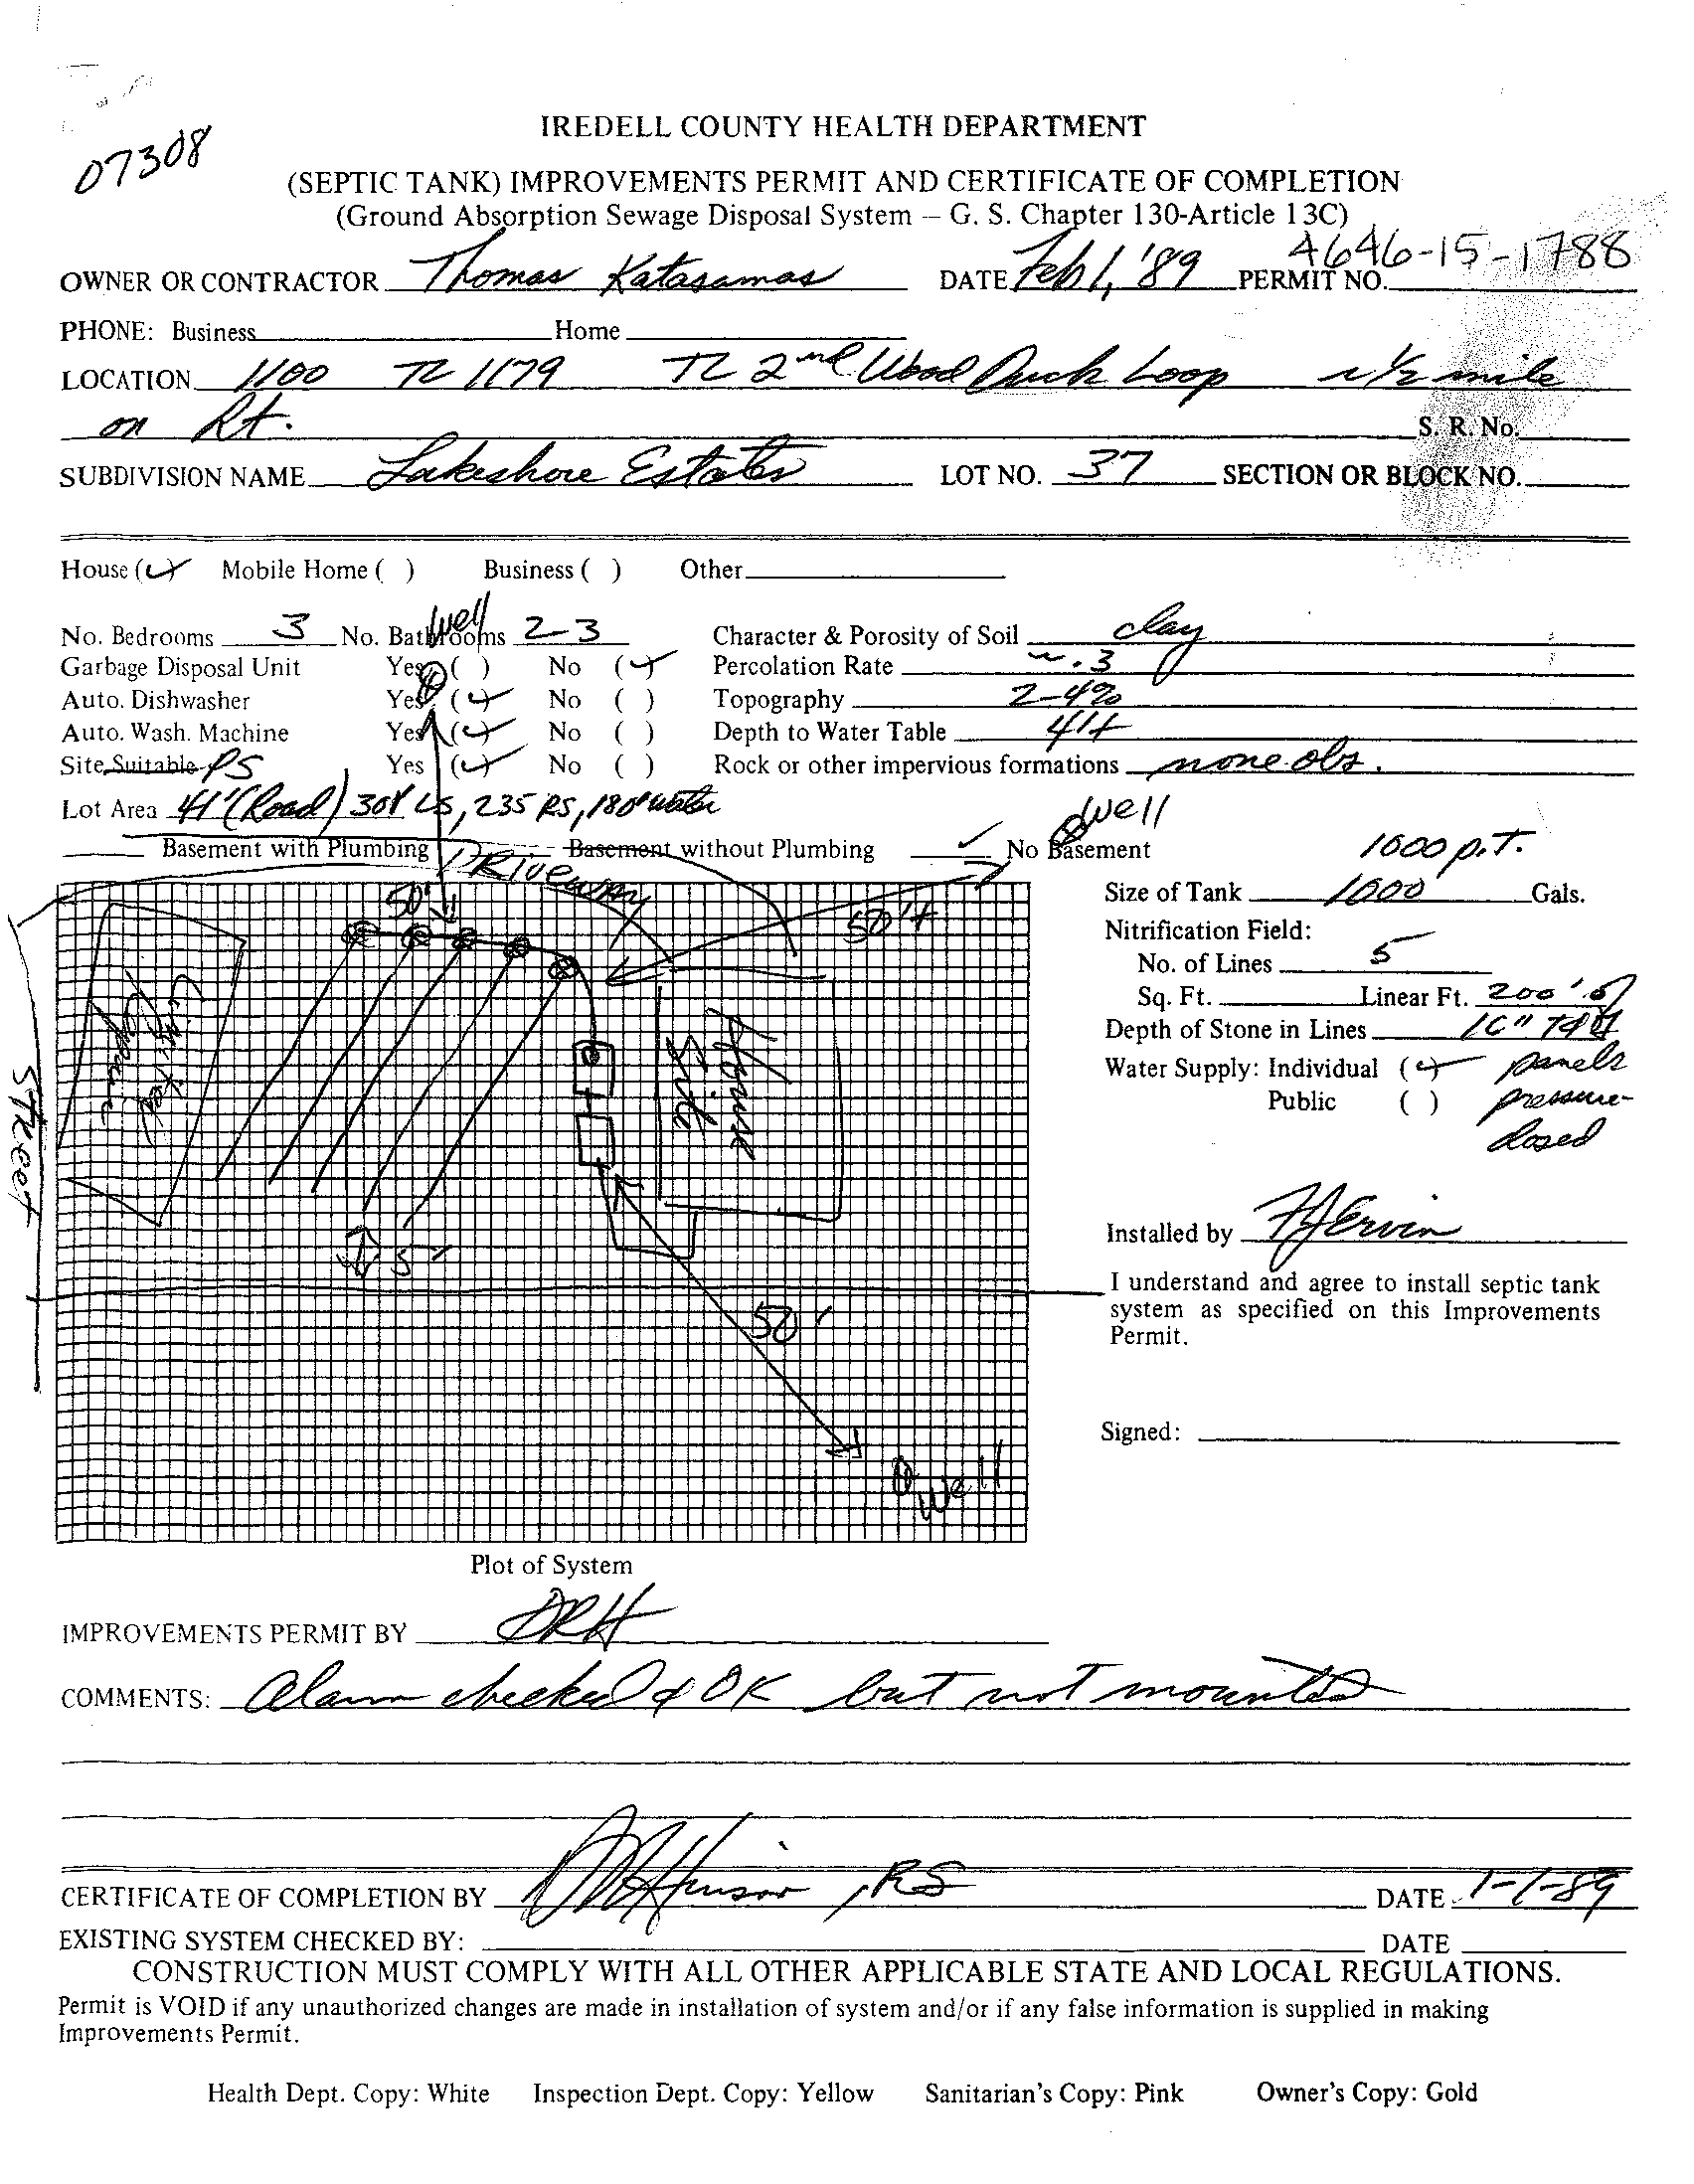 07308
IREDELL COUNTY HEALTH DEPARTMENT
(SEPTIC TANK) IMPROVEMENTS PERMIT AND CERTIFICATE OF COMPLETION
(Ground Absorption Sewage Disposal System – G. S. Chapter 130-Article 13C)
4646-15-1788
OWNER OR CONTRACTOR Thomas Katasamas DATE Feb 1, '89 PERMIT NO.
PHONE: Business Home
LOCATION 1100 TL 1179 TL 2nd Wood Duck Loop ~ 1/2 mile
on Rt. S. R. No.
SUBDIVISION NAME Lakeshore Estates LOT NO. 37 SECTION OR BLOCK NO.
House (✓) Mobile Home ( ) Business ( ) Other
well
No. Bedrooms 3 No. Bathrooms 2-3 Character & Porosity of Soil clay
Garbage Disposal Unit Yes ( ) No (✓) Percolation Rate ~.3
Auto. Dishwasher Yes (✓) No ( ) Topography 2-4%
Auto. Wash. Machine Yes (✓) No ( ) Depth to Water Table 4'+
Site Suitable PS Yes (✓) No ( ) Rock or other impervious formations none obs.
Lot Area 41' (Road) 308 LS, 235 RS, 180' water
well
Basement with Plumbing Basement without Plumbing ✓ No Basement 1000 p.T.
Driveway
Size of Tank 1000 Gals.
50'
50'+
Nitrification Field:
No. of Lines 5
Sq. Ft. Linear Ft. 200' of
Depth of Stone in Lines 16"
Water Supply: Individual (✓) panels
Public ( ) pressure-
dosed
House
Site
Street
5'
50'
well
Installed by Ervin
I understand and agree to install septic tank
system as specified on this Improvements
Permit.
Signed:
Plot of System
IMPROVEMENTS PERMIT BY DRH
COMMENTS: Alarm checked & OK but not mounted
CERTIFICATE OF COMPLETION BY , RS DATE 1-1-89
EXISTING SYSTEM CHECKED BY: DATE
CONSTRUCTION MUST COMPLY WITH ALL OTHER APPLICABLE STATE AND LOCAL REGULATIONS.
Permit is VOID if any unauthorized changes are made in installation of system and/or if any false information is supplied in making
Improvements Permit.
Health Dept. Copy: White Inspection Dept. Copy: Yellow Sanitarian's Copy: Pink Owner's Copy: Gold